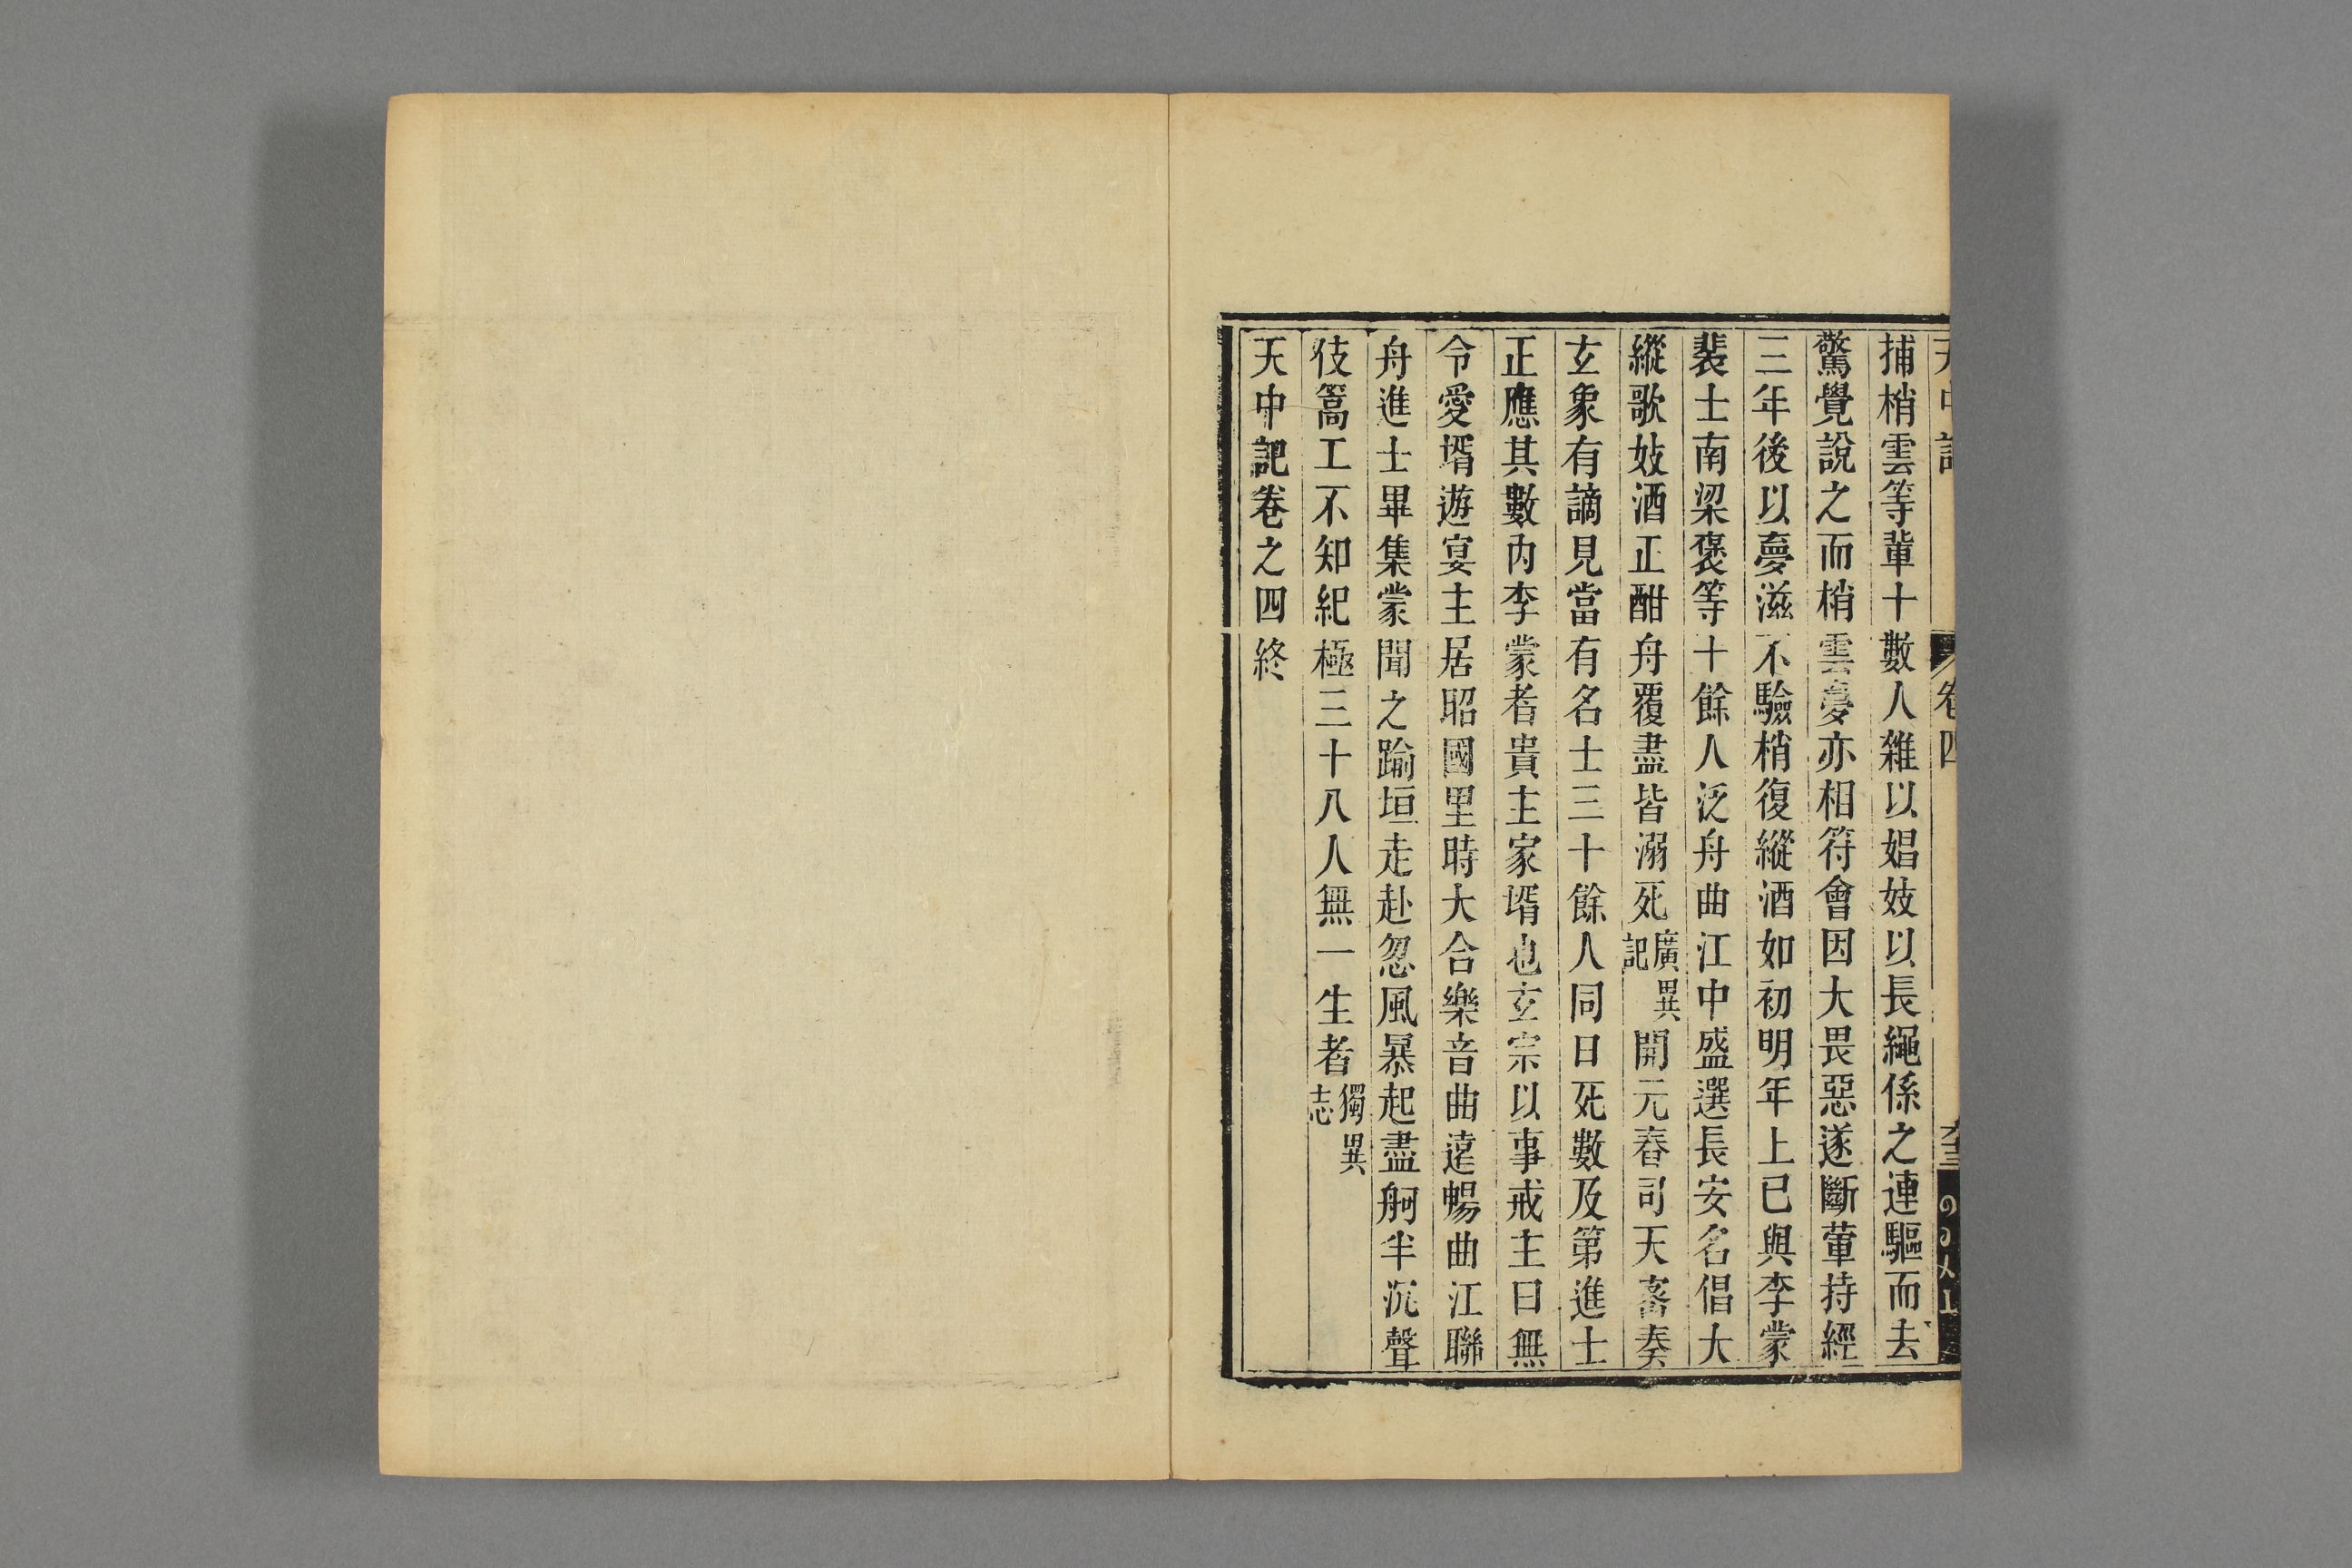 天中記 卷四
捕梢雲等輩十數人雜以娼妓以長繩係之連驅而去
驚覺說之而梢雲夢亦相符會因大畏惡遂斷葷持經
三年後以夢滋不驗梢復縱酒如初明年上已與李蒙
裴士南梁褒等十餘人泛舟曲江中盛選長安名倡大
縱歌妓酒正酣舟覆盡皆溺死廣異記開元春司天密奏
玄象有謫見當有名士三十餘人同日死數及第進士
正應其數內李蒙者貴主家壻也玄宗以事戒主曰無
令愛壻遊宴主居昭國里時大合樂音曲遠暢曲江聯
舟進士畢集蒙聞之踰垣走赴忽風暴起盡舸半沉聲
伎篙工不知紀極三十八人無一生者獨異志
天中記卷之四終